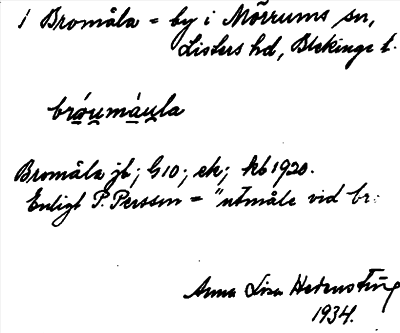 1 Bromåla = by i Mörrums sn,
Listers hd, Blekinge l.
bro̤umau̯la
Bromåla jb; G10; ek; kb 1920.
Enligt P. Persson = "utmåle vid br:
Anna Lisa Hedenström
1934.